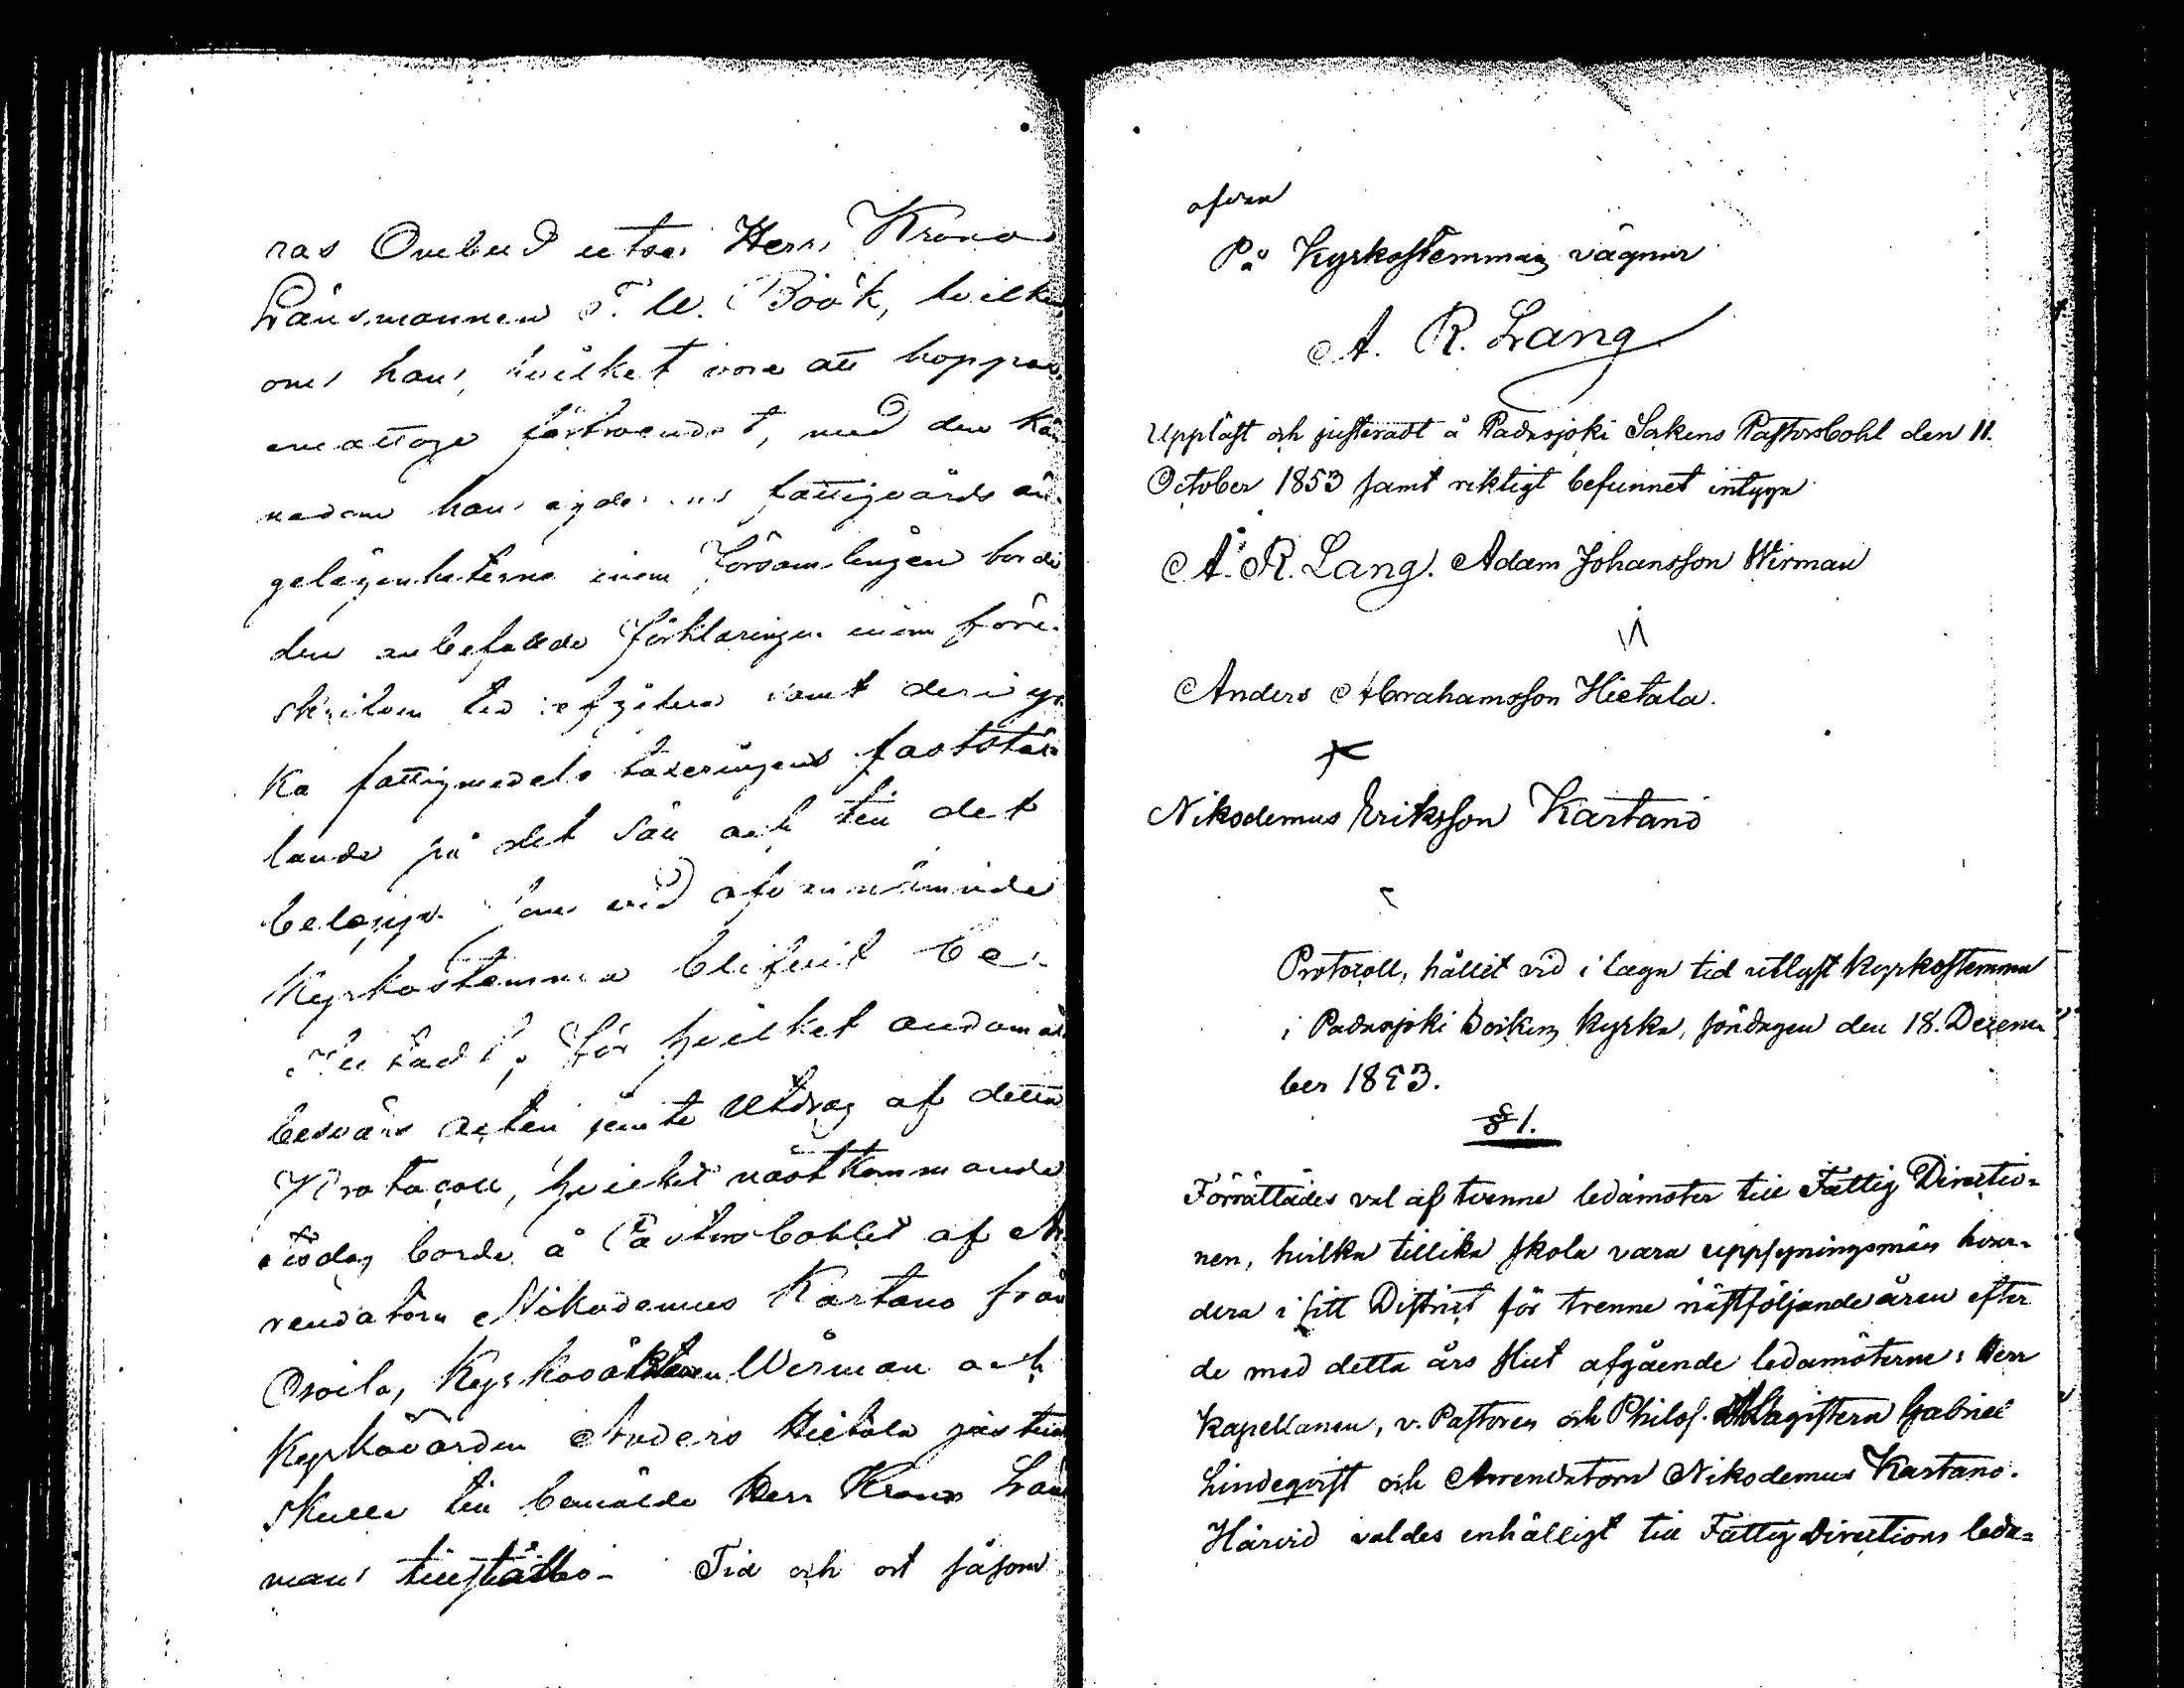 ras Ombud utse Herr Krono
Länsmannen F. W. Böök, hvilken
om han, hvilket vore att hoppas,
emottoge förtroendet, med den kän
nedom han egde om fattigvårds an
gelägenheterne inom Församlingen borde
den anbefallde förklaringen inom före
skrifven tid afgifva samt deri yr
ka fattigmedels taxeringens faststäl
lande på det sätt och till det
belopp som vid ofvannämnde
Kyrkostemma blifvit be
slutadt, för hvilket ändamål
besvärs acten jemte Utdrag af detta
Protocoll, hvilket nästkommande
tisdag borde å Pastorsbohlet af Ar
rendatorn Nikodemus Kartano från
Osoila, Kyrkovärden Wirman och
Kyrkovärden Anders Hietala justeras
skulle till bemälde Herr Krono Läns
man tillställas. Tid och ort såsom
ofvan
På Kyrkostemmans vägnar
A. R. Lang
Uppläst och justeradt å Padasjoki Sokens Pastorsbohl den 11.
October 1853 samt riktigt befunnet intyga
A. R. Lang. Adam Johansson Wirman
Anders Abrahamsson Hietala.
Nikodemus Eriksson Kartano
Protocoll, hållet vid i laga tid utlyst Kyrkostemma
i Padasjoki Sockens Kyrka, söndagen den 18. Decem
ber 1853.
§ 1.
Förrättades val af tvenne ledamöter till Fattig Directio=
nen, hvilka tillika skola vara uppsyningsmän hvar=
dera i sitt District för trenne nästföljande åren efter
de med detta års slut afgående ledamöterne: Herr
Kapellanen, v. Pastoren och Philos. Magistern Gabriel
Lindeqvist och Arrendatorn Nikodemus Kartano.
Härvid valdes enhälligt till Fattig Directions leda=